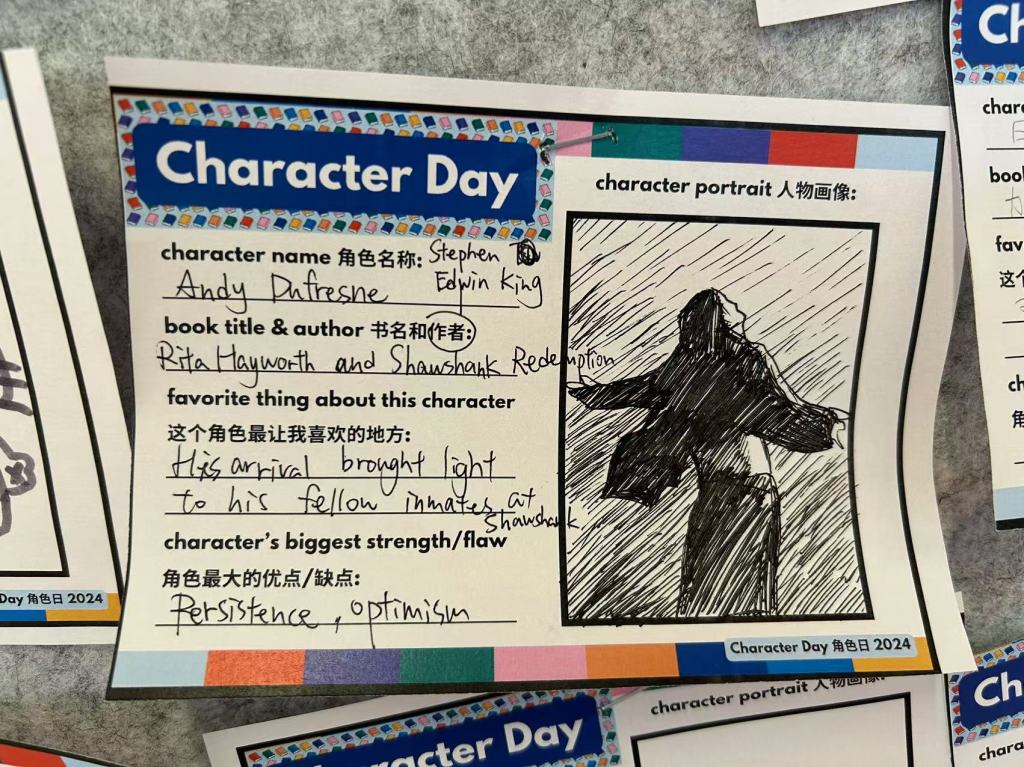 Character Day
character name 角色名称: Stephen
Edwin King
Andy Dufresne
book title & author 书名和作者:
Rita Hayworth and Shawshank Redemption
favorite thing about this character
这个角色最让我喜欢的地方:
His arrival brought light
to his fellow inmates at
Shawshank
character's biggest strength/flaw
角色最大的优点/缺点:
Persistence, optimism
character portrait 人物画像:
Character Day 角色日 2024
Day 角色日 2024
character portrait 人物画像:
Character Day
Ch
charac
book
fav
这个
ch
角
Ch
charac